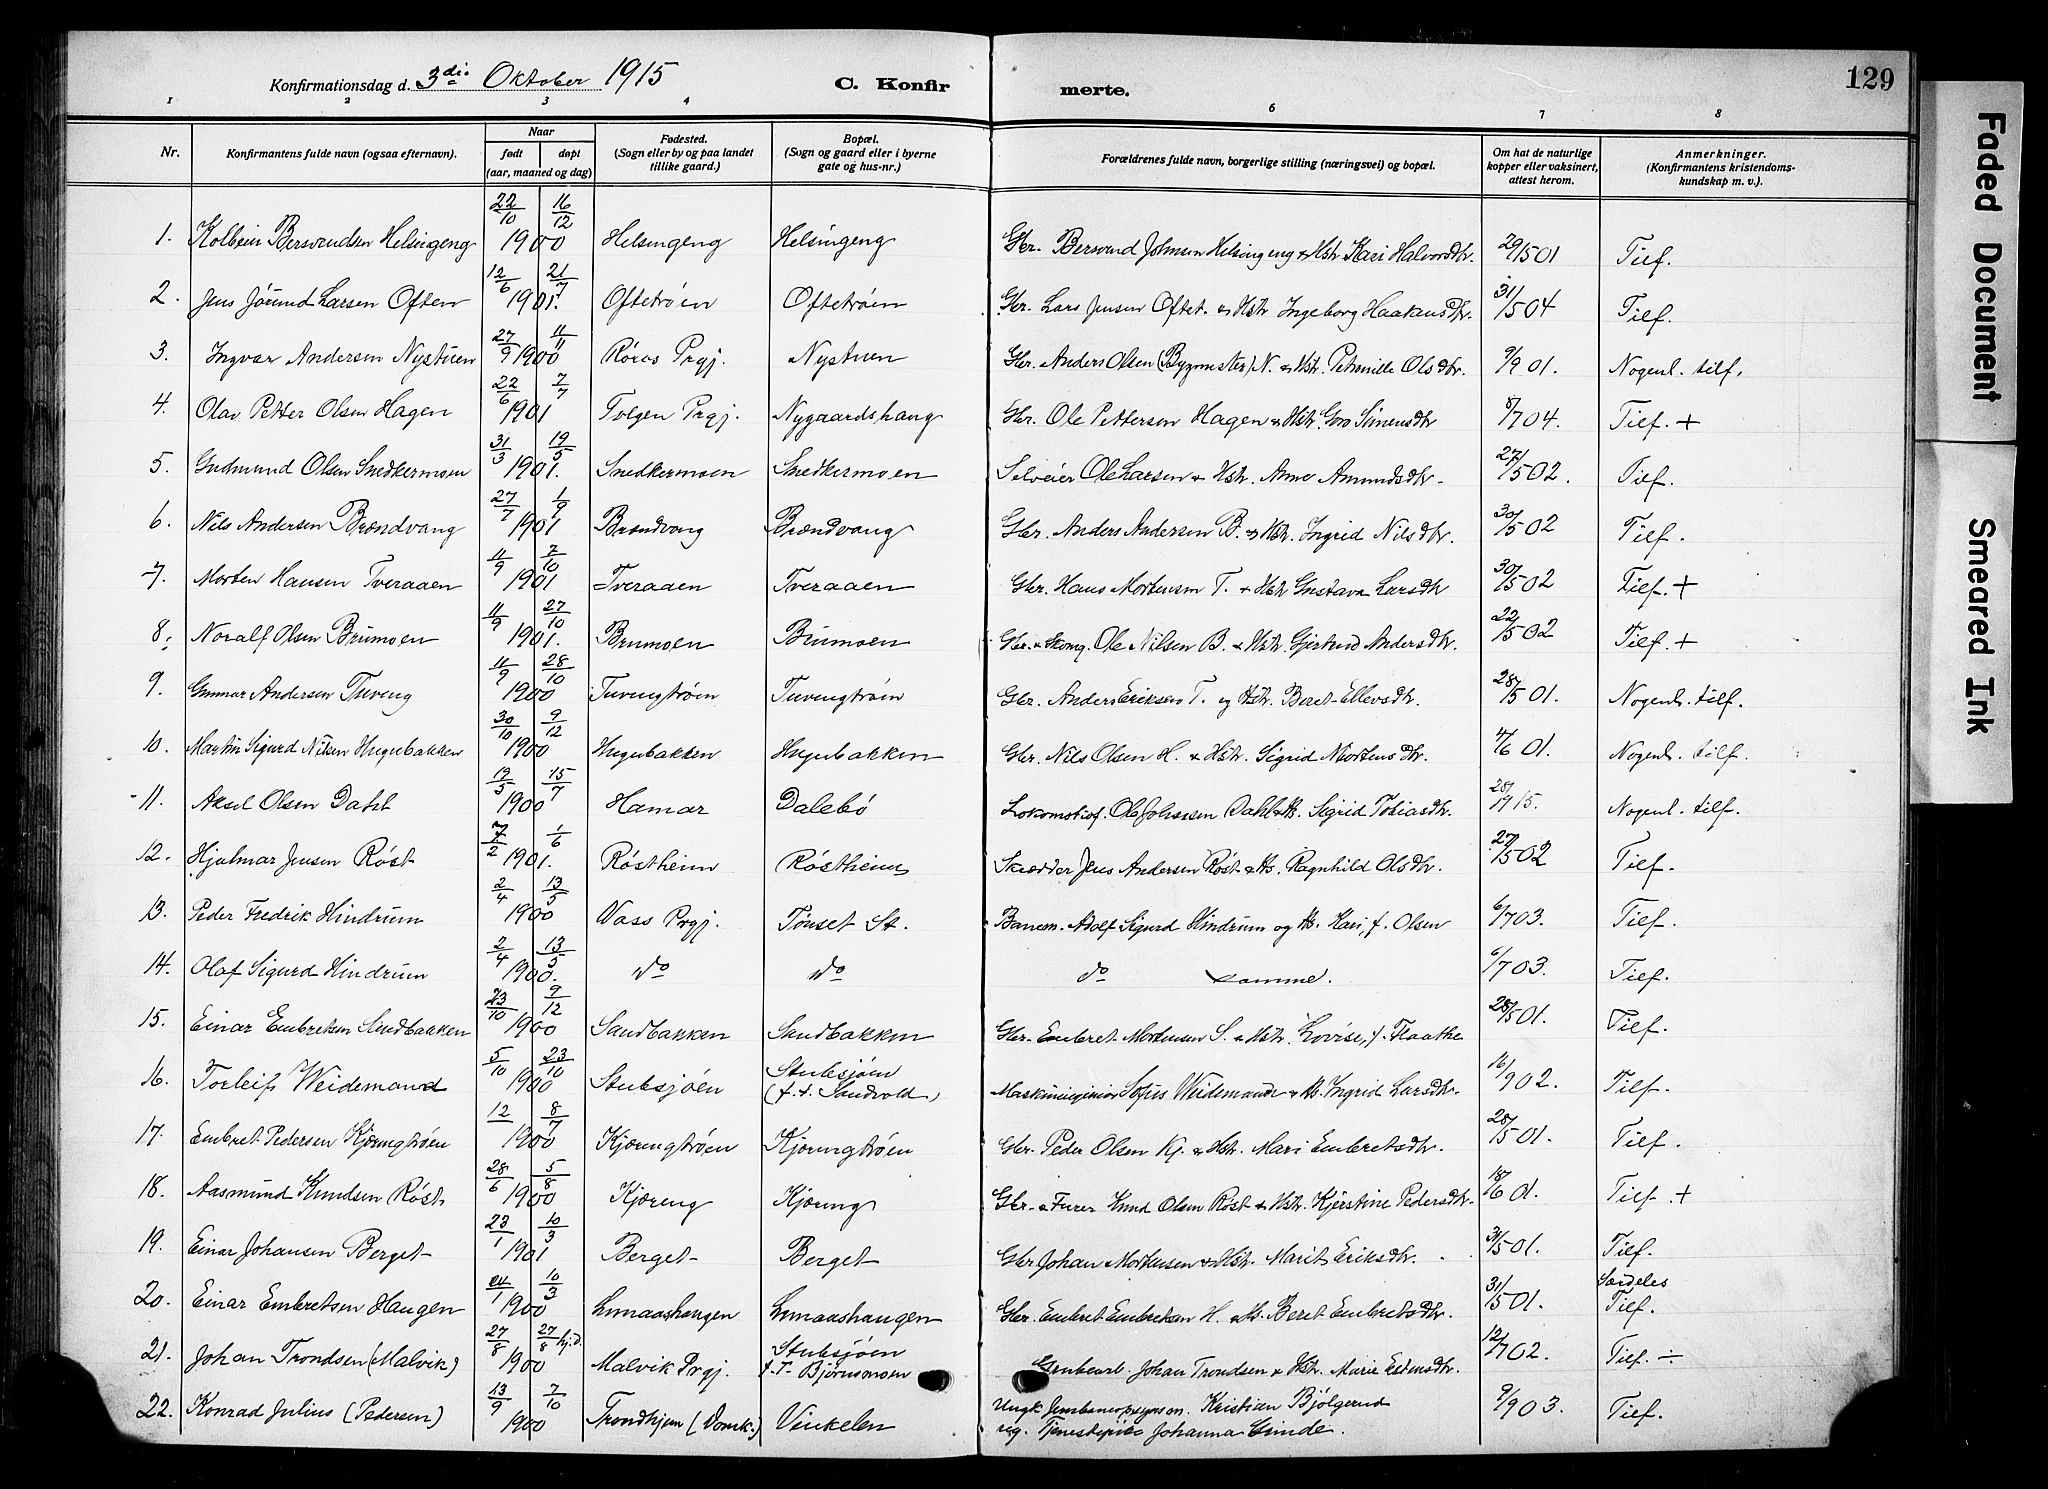 Konfirmationsdag d. 3die Oktober 1915 C. Konfir merte. 129
1 2 3 4 5 6 7 8
Nr. Konfirmantens fulde navn (ogsaa efternavn). Naar født døpt (aar, maaned og dag) Fødested. (Sogn eller by og paa landet tillike gaard.) Bopæl. (Sogn og gaard eller i byerne gate og hus-nr.) Forældrenes fulde navn, borgerlige stilling (næringsvei) og bopæl. Om hat de naturlige kopper eller vaksinert, attest herom. Anmerkninger. (Konfirmantens kristendomskundskap m. v.).
1. Kolbein Bersvendsen Helsingeng 22/10 16/12 1900 Helsingeng Helsingeng Gbr. Bersvend Johnsen Helsingeng & Hstr. Kari Halvorsdtr. 29/5 01 Tilf.
2. Jens Jörund Larsen Often 12/6 21/7 1901. Oftetröen Oftetröen Gbr. Lars Jensen Oftet. & Hstr Ingeborg Haakensdtr. 31/5 04 Tilf.
3. Ingvar Andersen Nystuen 27/9 11/11 1900 Röros Prgj. Nystuen Gbr. Anders Olsen (Bygmester) N. & Hstr. Petronille Olsdtr. 9/9 01. Nogenl. tilf.
4. Olav Petter Olsen Hagen 22/6 7/7 1901 Tolgen Prgj. Nygaardshaug Gbr. Ole Pettersen Hagen & Hstr. Goro Simensdtr 8/7 04. Tilf. +
5. Gudmund Olsen Snedkermoen 31/3 19/5 1901. Snedkermoen Snedkermoen Selveier Ole Larsen & Hstr. Anne Amundsdtr. 27/5 02. Tilf.
6. Nils Andersen Brændvang 27/7 1/9 1901 Brændvang Brændvang Gbr. Anders Andersen B. & Hstr. Ingrid Nilsdtr. 30/5 02 Tilf.
7. Morten Hansen Tveraaen 11/9 7/10 1901 Tveraaen Tveraaen Gbr. Hans Mortensen T. & Hstr Gustava Larsdtr 30/5 02 Tilf. +
8. Noralf Olsen Brumoen 11/9 27/10 1901. Brumoen Brumoen Gbr. & Skomg. Ole Nilsen B. & Hstr. Gjertrud Andersdtr. 22/5 02 Tilf. +
9. Gunnar Andersen Tuveng 11/9 28/10 1900 Tuvengtröen Tuvengtröen Gbr. Anders Eriksen T. og Hstr. Beret Ellevsdtr. 28/5 01. Nogenl. tilf.
10. Martin Sigurd Nilsen Hugubakken 30/10 9/12 1900 Hugubakken Hugubakken Gbr. Nils Olsen H. & Hstr. Sigrid Mortensdtr. 4/6 01. Nogenl. tilf.
11. Aksel Olsen Dahl 19/5 15/7 1900 Hamar Dalebö Lokomotivf. Ole Johnsen Dahl & H. Sigrid Tobiasdtr. 15. Nogenl. tilf.
12. Hjalmar Jensen Röst 7/2 1/6 1901. Röstheim Röstheim Skrædder Jens Andersen Röst & H. Ragnhild Olsdtr. 27/5 02 Tilf.
13. Peder Fredrik Hindrum 2/4 13/5 1900 Voss Prgj. Tönset St. Banem. Adolf Sigurd Hindrum og H. Kari, f. Olsen 6/7 03. Tilf.
14. Olaf Sigurd Hindrum 2/4 13/5 1900. do do do samme. 6/7 03. Tilf.
15. Einar Embretsen Sandbakken 23/10 9/12 1900 Sandbakken Sandbakken Gbr. Embret Mortensen S. & Hstr. Lovise, f. Flaathe 28/5 01. Tilf.
16. Torleif Weidemand 5/10 23/10 1900 Stubsjöen Stubsjöen (f. t. Sandvold) Maskiningeniör Sofus Weidemand & H. Ingrid Larsdtr. 16/9 02. Tilf.
17. Embret Pedersen Kjærengtröen 12/ 8/7 1900 Kjærengtröen Kjærengtröen Gbr. Peder Olsen Kj. & Hstr. Mari Embretsdtr. 28/5 01. Tilf.
18. Aasmund Knudsen Röst 28/6 5/8 1900 Kjæreng Kjæreng Gbr. & Furer Knud Olsen Röst & Hstr. Kjerstine Pedersdtr. 18/6 01. Tilf. +
19. Einar Johansen Berget 23/1 10/3 1901 Berget Berget Gbr Johan Mortensen & Hstr. Marit Eriksdtr. 31/5 01. Tilf.
20. Einar Embretsen Haugen 24/1 10/3 1900 Lomaashaugen Lomaashaugen Gbr. Embret Embretsen H. & H. Beret Embretsdtr. 31/5 01. Særdeles Tilf.
21. Johan Trondsen (Malvik) 27/8 27/8 hj.d. 1900 Malvik Prgj. Stubsjöen f. T. Björnsmoen Grubearb. Johan Trondsen & Hstr. Marie Estensdtr. 12/7 02. Tilf. ÷
22. Konrad Julius (Pedersen) 13/9 7/10 1900 Trondhjem (Domk.) Vinkelen Ungk. Kristian Bjölgerud
ug. Tjenestepige Johanna 9/9 03. Tilf.
Faded Document
Smeared Ink